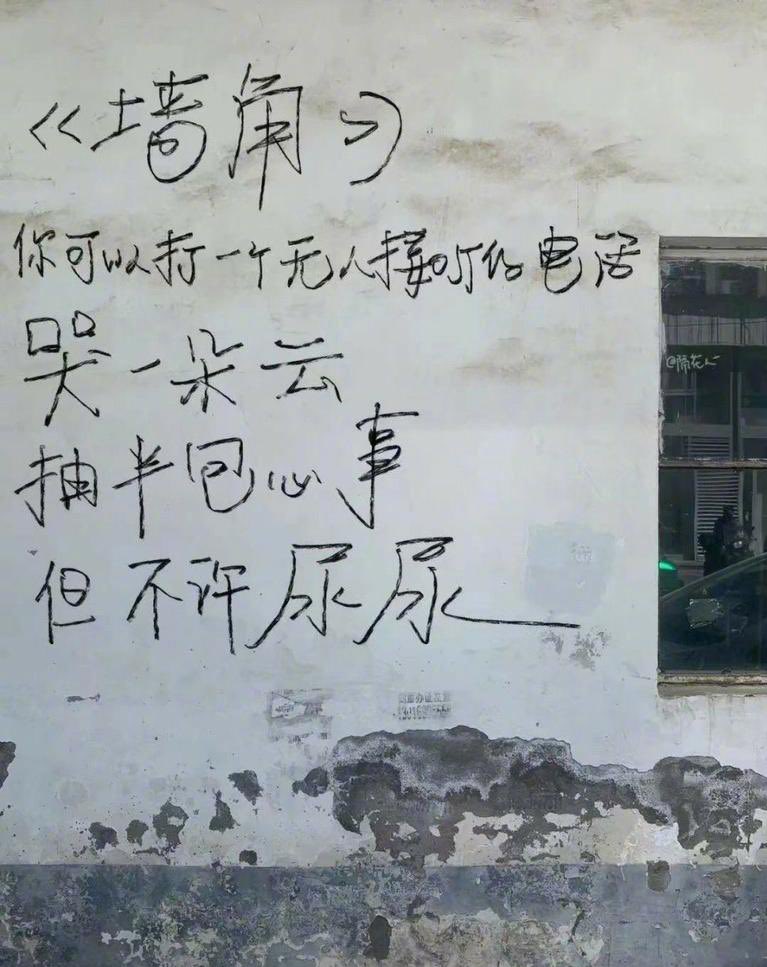 《墙角》
你可以打一个无人接听的电话
哭一朵云
抽半包心事
但不许尿尿
@隔花人